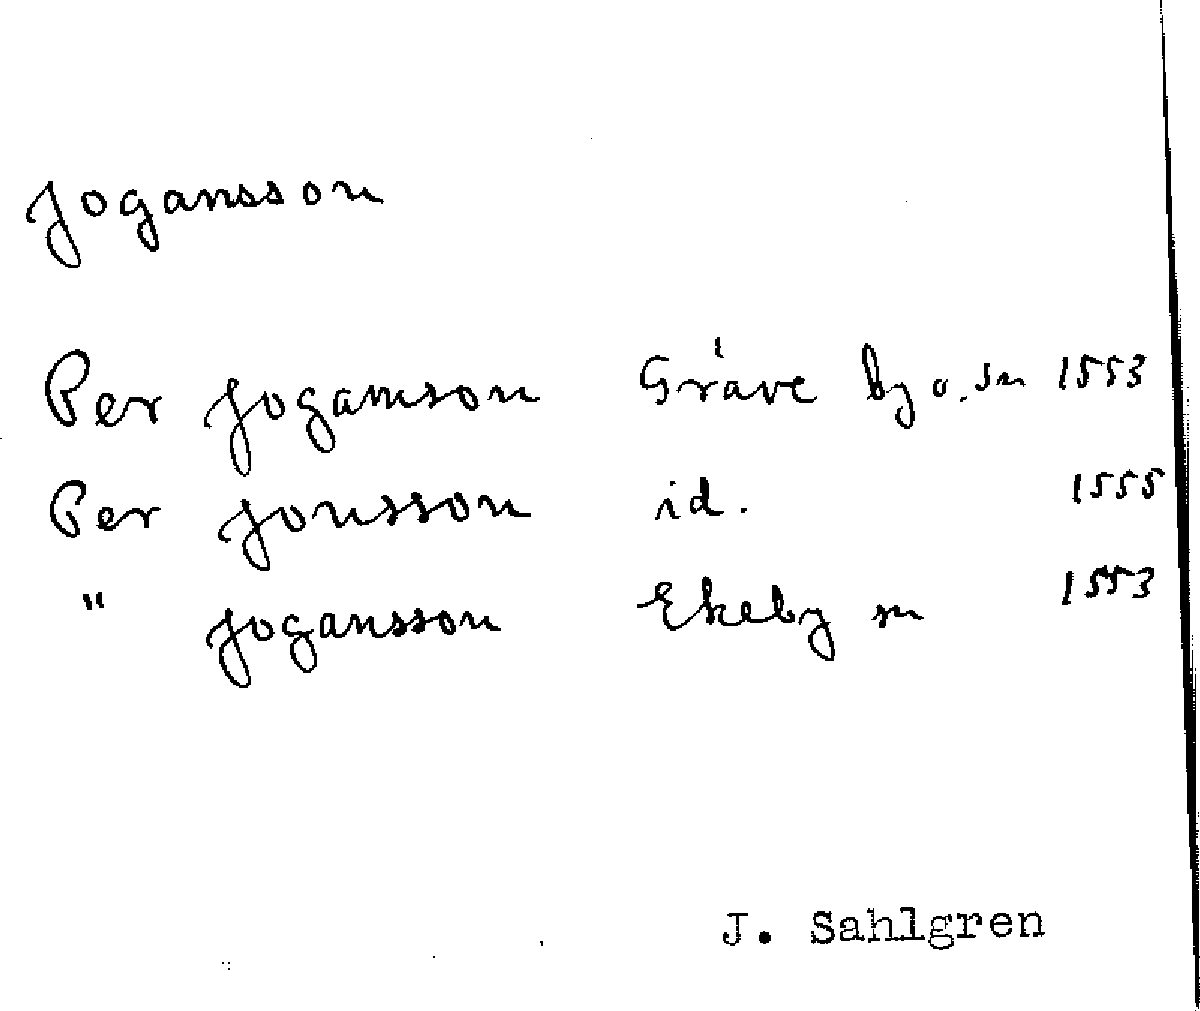 Jogansson
Per Jogansson Gräve by o. sn 1553
Per Jonsson id. 1555
" Jogansson Ekeby sn 1553
J. Sahlgren